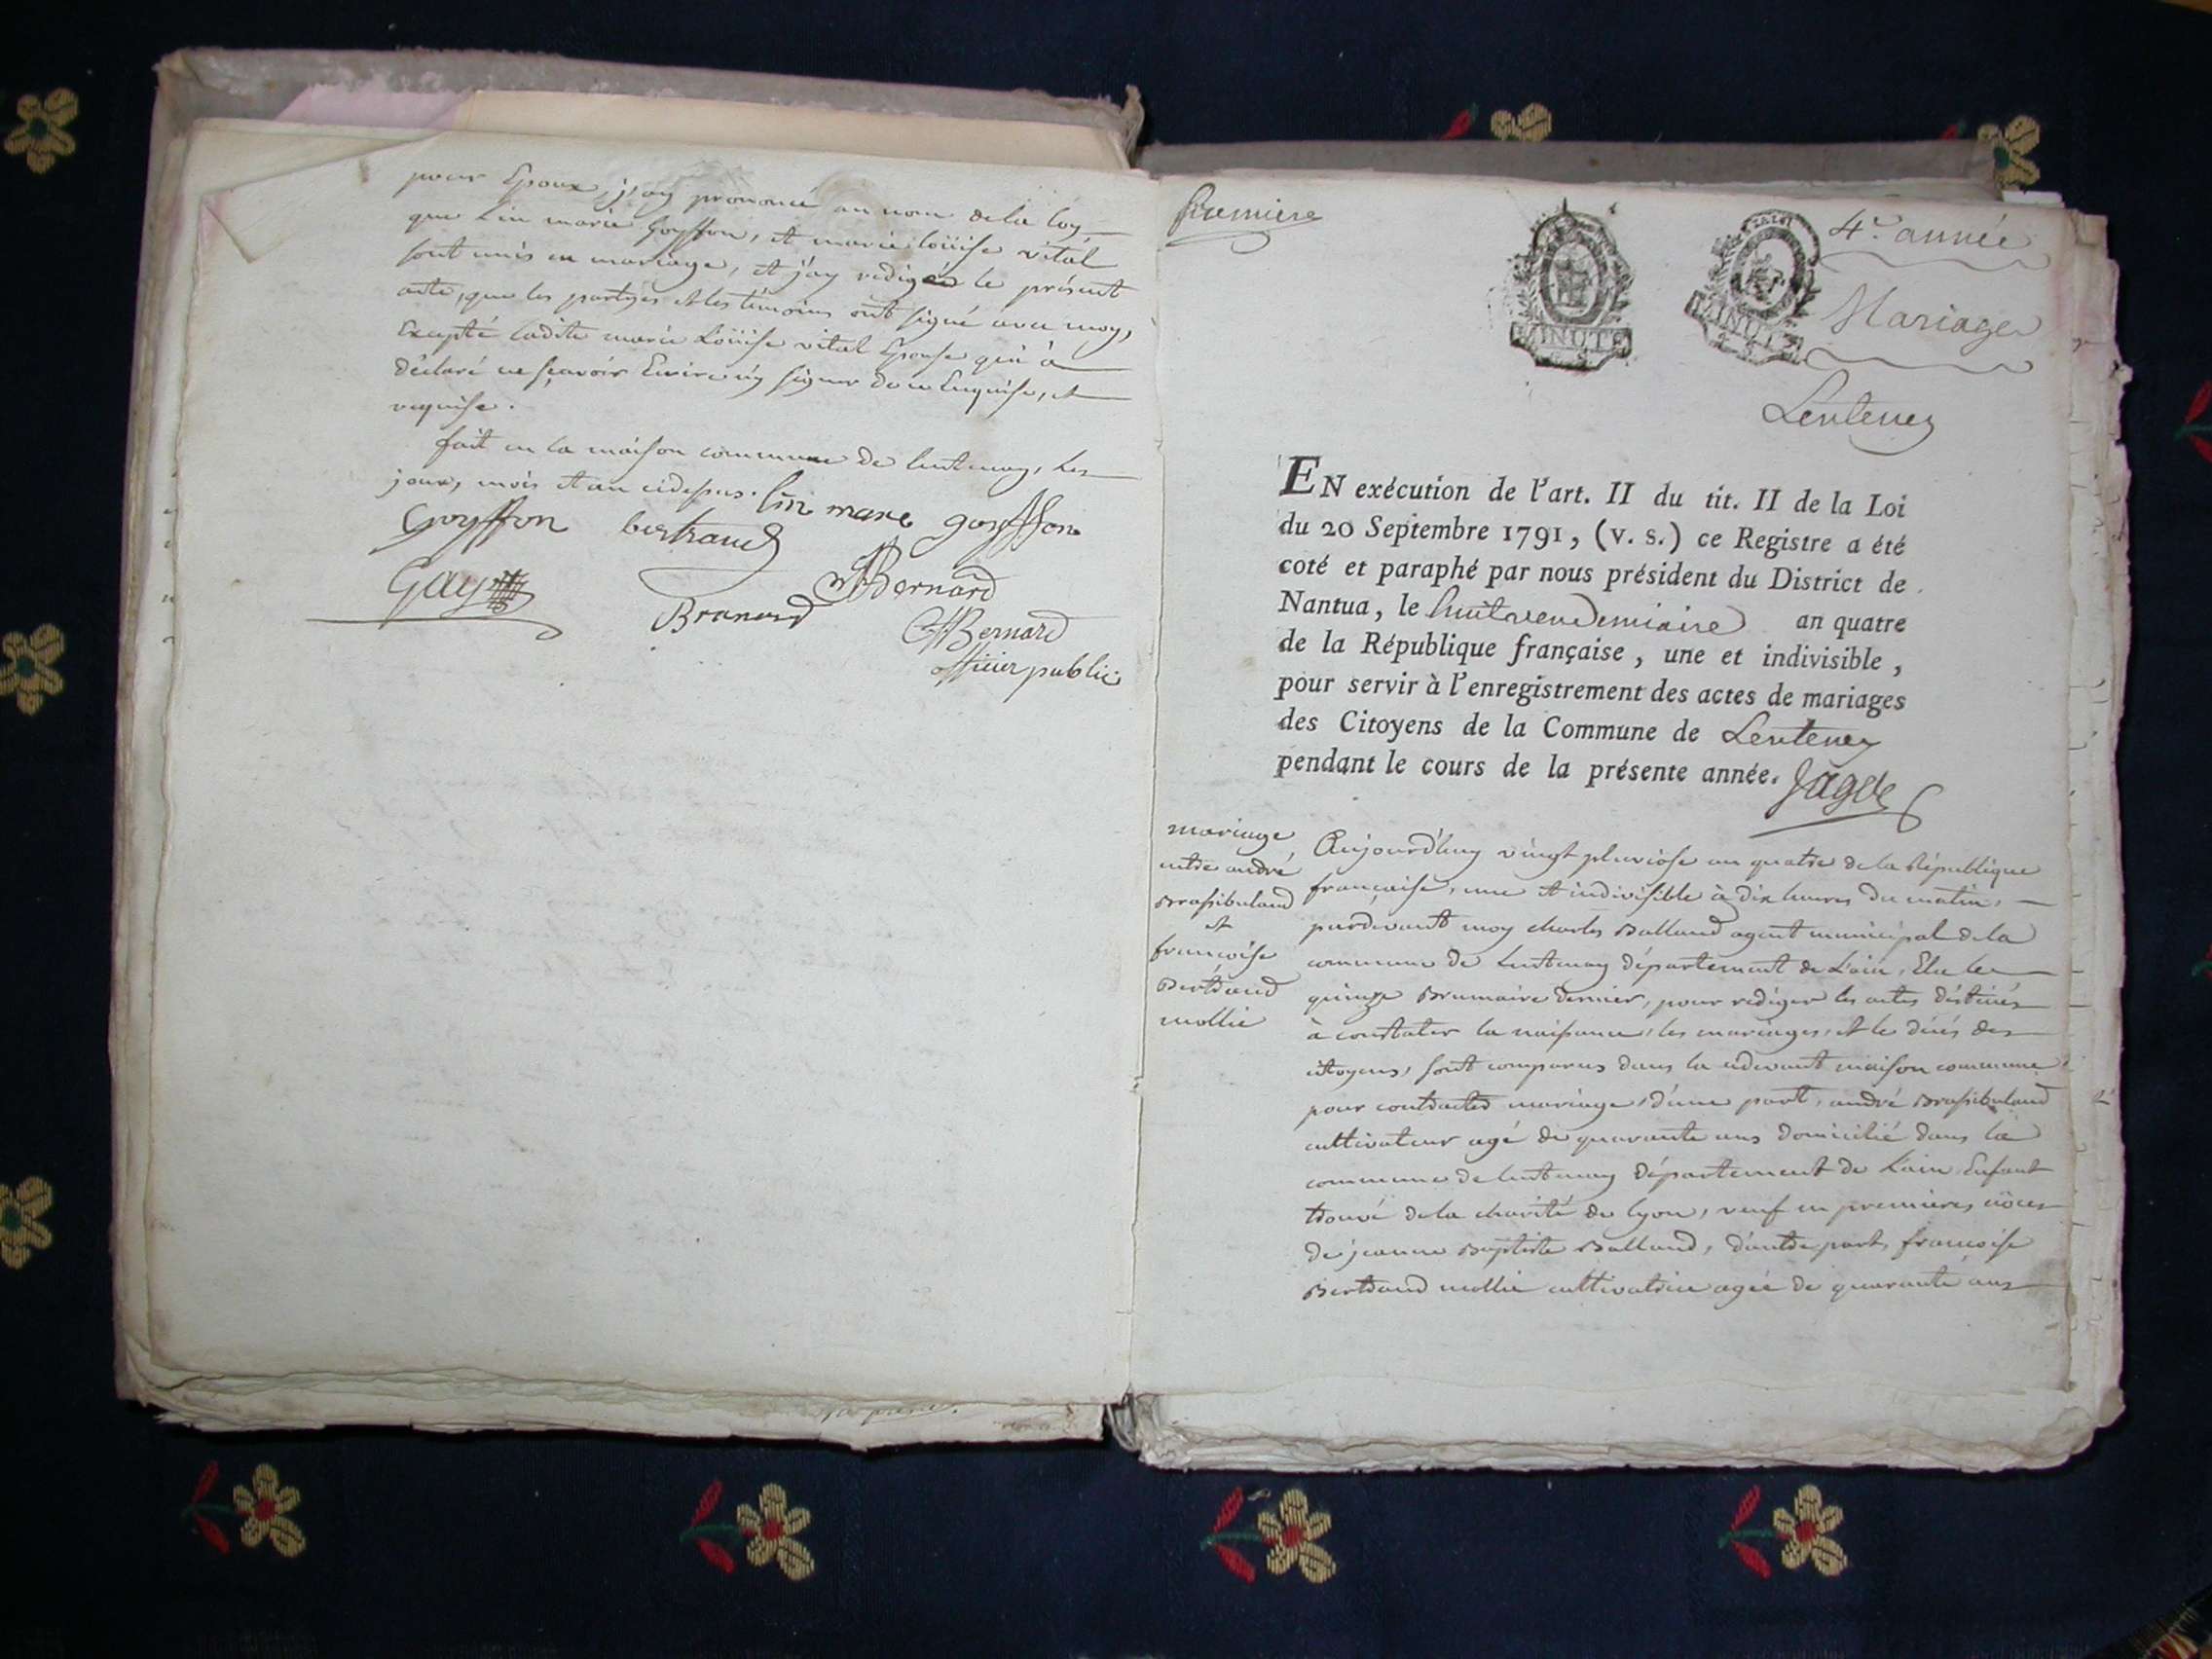 pour Epoux, j'ay prononcé au nom de la loy
que Lin marie goyffon, et marie loüise vital
sont unis en mariage, et j'ay redigés le présent
acte, que les partyes et les témoins ont signé avec moy,
Excepté ladite marie Loüise vital Epouse qui à
déclaré ne sçavoir Ecrire n'y signer de ce Enquise, et
requise.
fait en la maison commune de lentenay, les
jour, mois et an cidessus. lin marie goyffon
Goyffon bertrand
Gay Bernard
Branard Bernard
officier public
Premiere
4e. année
MINUTE MINUTE
Mariages
Lenteney
EN exécution de l'art. II du tit. II de la Loi
du 20 Septembre 1791, (v. s.) ce Registre a été
coté et paraphé par nous président du District de
Nantua, le huit vendemiaire an quatre
de la République française, une et indivisible,
pour servir à l'enregistrement des actes de mariages
des Citoyens de la Commune de Lenteney
pendant le cours de la présente année.
mariage
entre andré
Brassibuland
et
françoise
Bertrand
mollie
Aujourd'huy vingt pluviose an quatre de la République
française, une et indivisible à dix heures du matin,
pardevant moy charles Balland agent municipal de la
commune de Lentenay département de L'ain, Elu le
quinze Brumaire dernier, pour rediger les actes déstinés
à constater la naissance, les mariages, et le décés des
citoyens, sont comparus dans la cidevant maison commune
pour contracter mariage, d'une part, andré Brassibuland
cultivateur agé de quarante ans domicilié dans la
commune de lentenay département de L'ain Enfant
trouvé de la charité de lyon, veuf en premieres nôces
de jeanne Baptiste Balland, d'autre part, françoise
Bertrand mollie cultivatrice agée de quarante ans